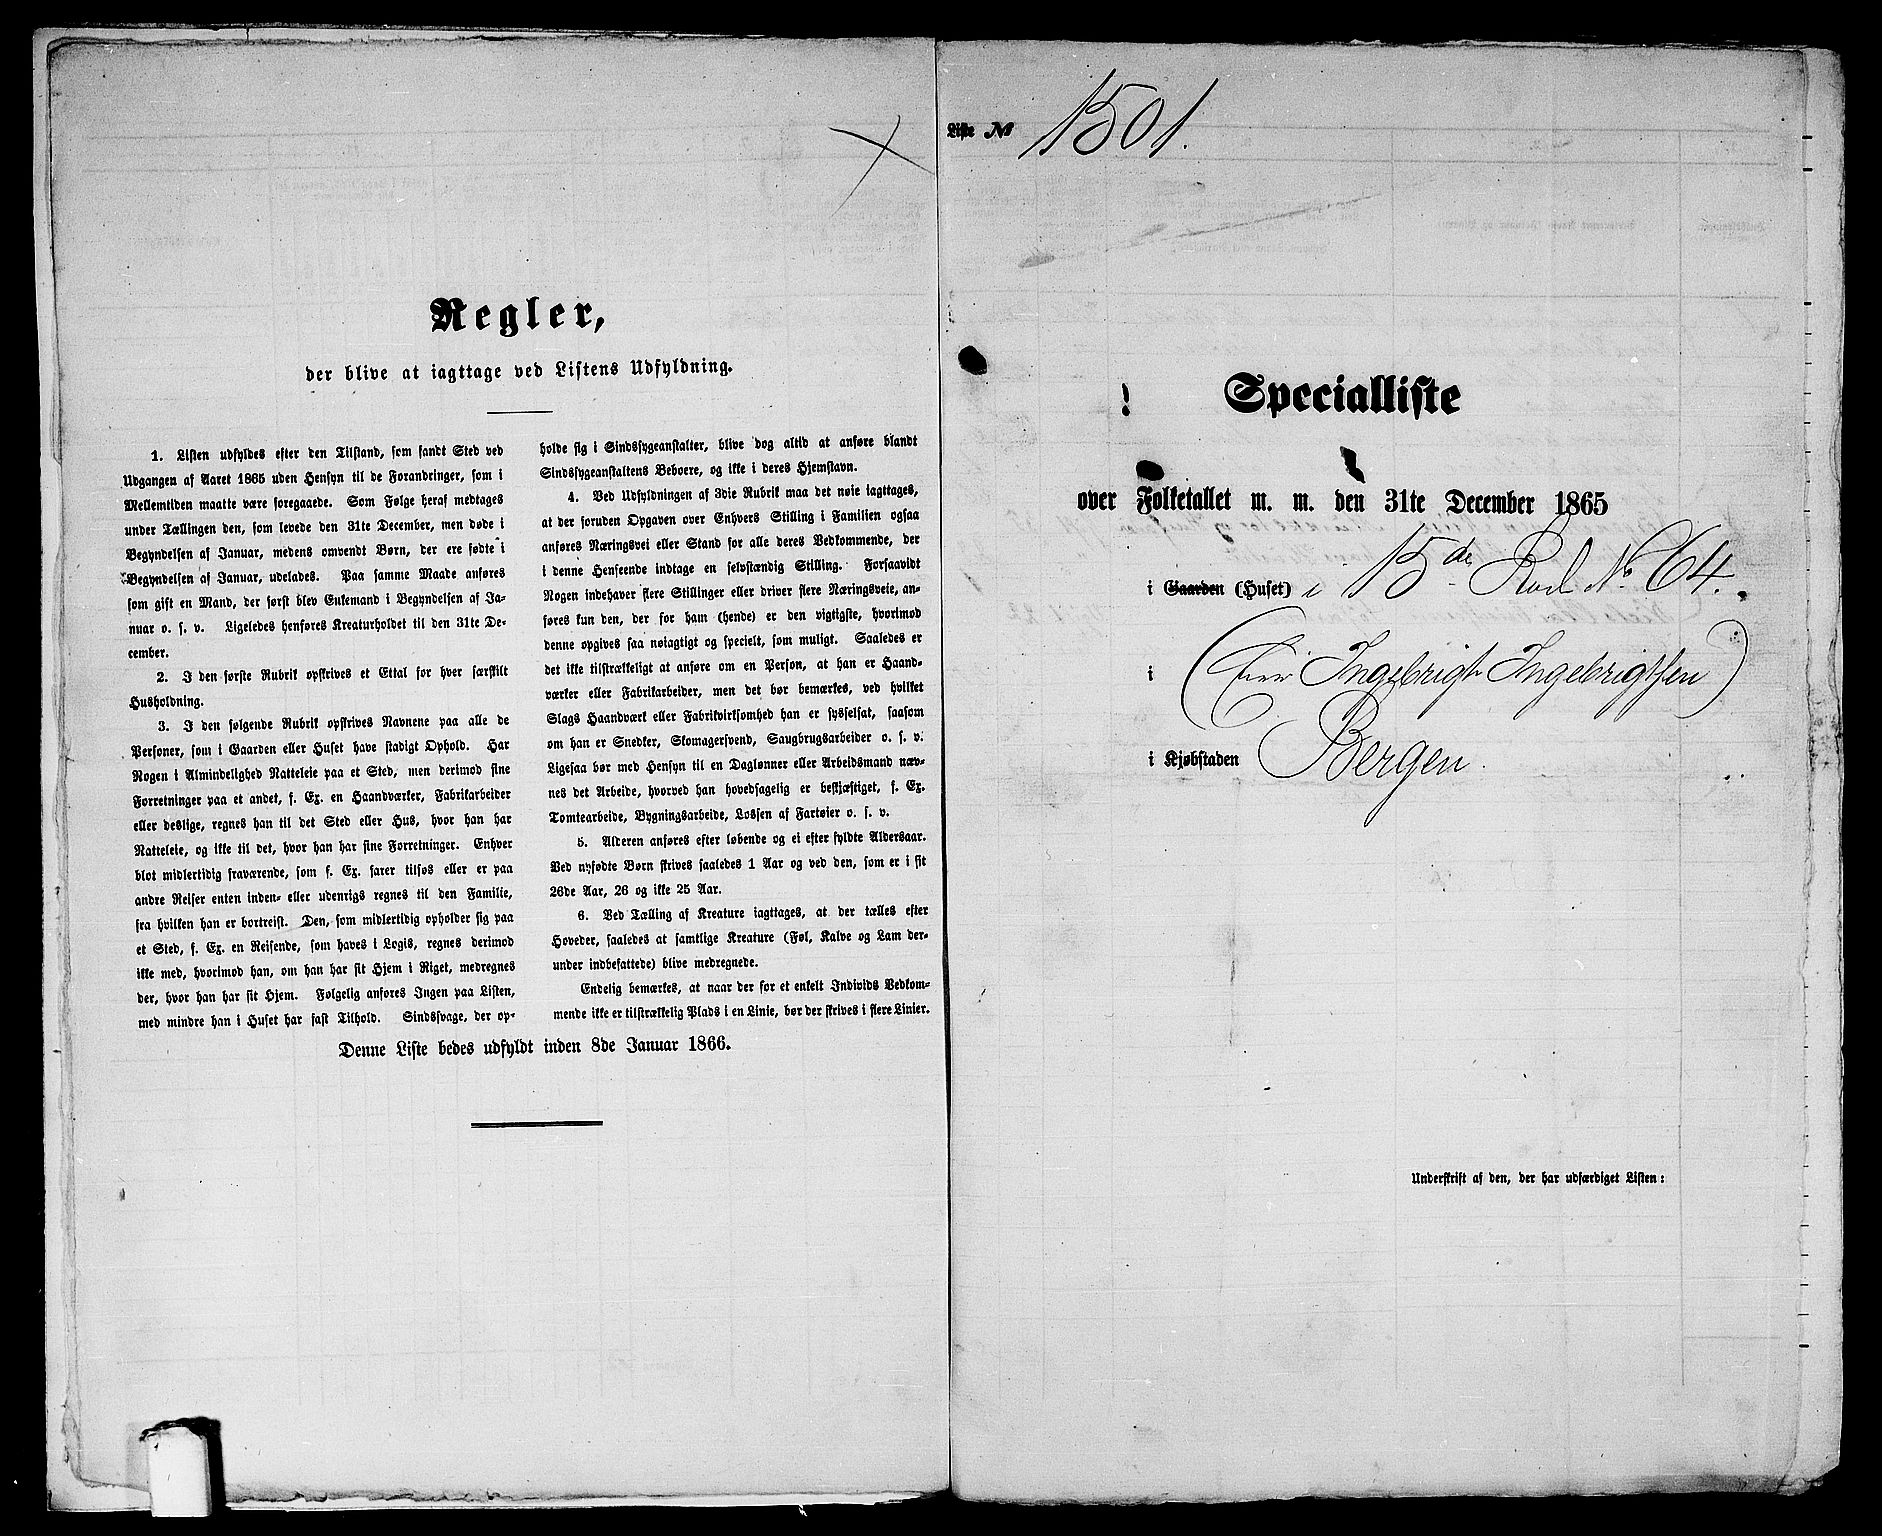 Regler,
der blive at iagttage ved Listens Udfyldning.
1. Listen udfyldes efter den Tilstand, som fandt Sted ved
Udgangen af Aaret 1865 uden Hensyn til de Forandringer, som i
Mellemtiden maatte være foregaaede. Som Følge heraf medtages
under Tællingen den, som levede den 31te December, men døde i
Begyndelsen af Januar, medens omvendt Børn, der ere fødte i
Begyndelsen af Januar, udelades. Paa samme Maade anføres
som gift en Mand, der først blev Enkemand i Begyndelsen af Ja-
nuar o. s. v. Ligeledes henføres Kreaturholdet til den 31te De-
cember.
2. I den første Rubrik opskrives et Ettal for hver særskilt
Husholdning.
3. I den følgende Rubrik opskrives Navnene paa alle de
Personer, som i Gaarden eller Huset have stadigt Ophold. Har
Nogen i Almindelighed Natteleie paa et Sted, men derimod sine
Forretninger paa et andet, f. Ex. en Haandværker, Fabrikarbeider
eller deslige, regnes han til det Sted eller Hus, hvor han har
Natteleie, og ikke til det, hvor han har sine Forretninger. Enhver
blot midlertidig fraværende, som f. Ex. farer tilsøs eller er paa
andre Reiser enten inden- eller udenrigs regnes til den Familie,
fra hvilken han er bortreist. Den, som midlertidig opholder sig paa
et Sted, f. Ex. en Reisende, som haves i Logis, regnes derimod
ikke med, hvorimod han, om han har sit Hjem i Riget, medregnes
der, hvor han har sit Hjem. Følgelig anføres Ingen paa Listen,
med mindre han i Huset har fast Tilhold. Sindssvage, der op-
holde sig i Sindssygeanstalter, blive dog altid at anføre blandt
Sindssygeanstaltens Beboere, og ikke i deres Hjemstavn.
4. Ved Udfyldningen af 3die Rubrik maa det nøie iagttages,
at der foruden Opgaven over Enhvers Stilling i Familien ogsaa
anføres Næringsvei eller Stand for alle deres Vedkommende, der
i denne Henseende indtage en selvstændig Stilling. Forsaavidt
Nogen indehaver flere Stillinger eller driver flere Næringsveie, an-
føres kun den, der for ham (hende) er den vigtigste, hvorimod
denne opgives saa nøiagtigt og specielt, som muligt. Saaledes er
det ikke tilstrækkeligt at anføre om en Person, at han er Haand-
værker eller Fabrikarbeider, men det bør bemærkes, ved hvilket
Slags Haandværk eller Fabrikvirksomhed han er sysselsat, saasom
om han er Snedker, Skomagersvend, Saugbrugsarbeider o. s. v.
Ligesaa bør med Hensyn til en Daglønner eller Arbeidsmand næv-
nes det Arbeide, hvorved han hovedsagelig er beskjæftiget, f. Ex.
Tomtearbeide, Bygningsarbeide, Lossen af Fartøier o. s. v.
5. Alderen anføres efter løbende og ei efter fyldte Aldersaar.
Ved nyfødte Børn skrives saaledes 1 Aar og ved den, som er i sit
26de Aar, 26 og ikke 25 Aar.
6. Ved Tælling af Kreature iagttages, at der tælles efter
Hoveder, saaledes at samtlige Kreature (Føl, Kalve og Lam der-
under indbefattede) blive medregnede.
Endelig bemærkes, at naar der for et enkelt Individs Vedkom-
mende ikke er tilstrækkelig Plads i en Linie, bør der skrives i flere Linier.
Denne Liste bedes udfyldt inden 8de Januar 1866.
Liste № 1501.
Specialliste
over Folketallet m. m. den 31te December 1865
i Gaarden (Huset) i 15de Rode No 64.
i (Eier Ingebrigt Ingebrigtsen)
i Kjøbstaden Bergen.
Underskrift af den, der har udfærdiget Listen: